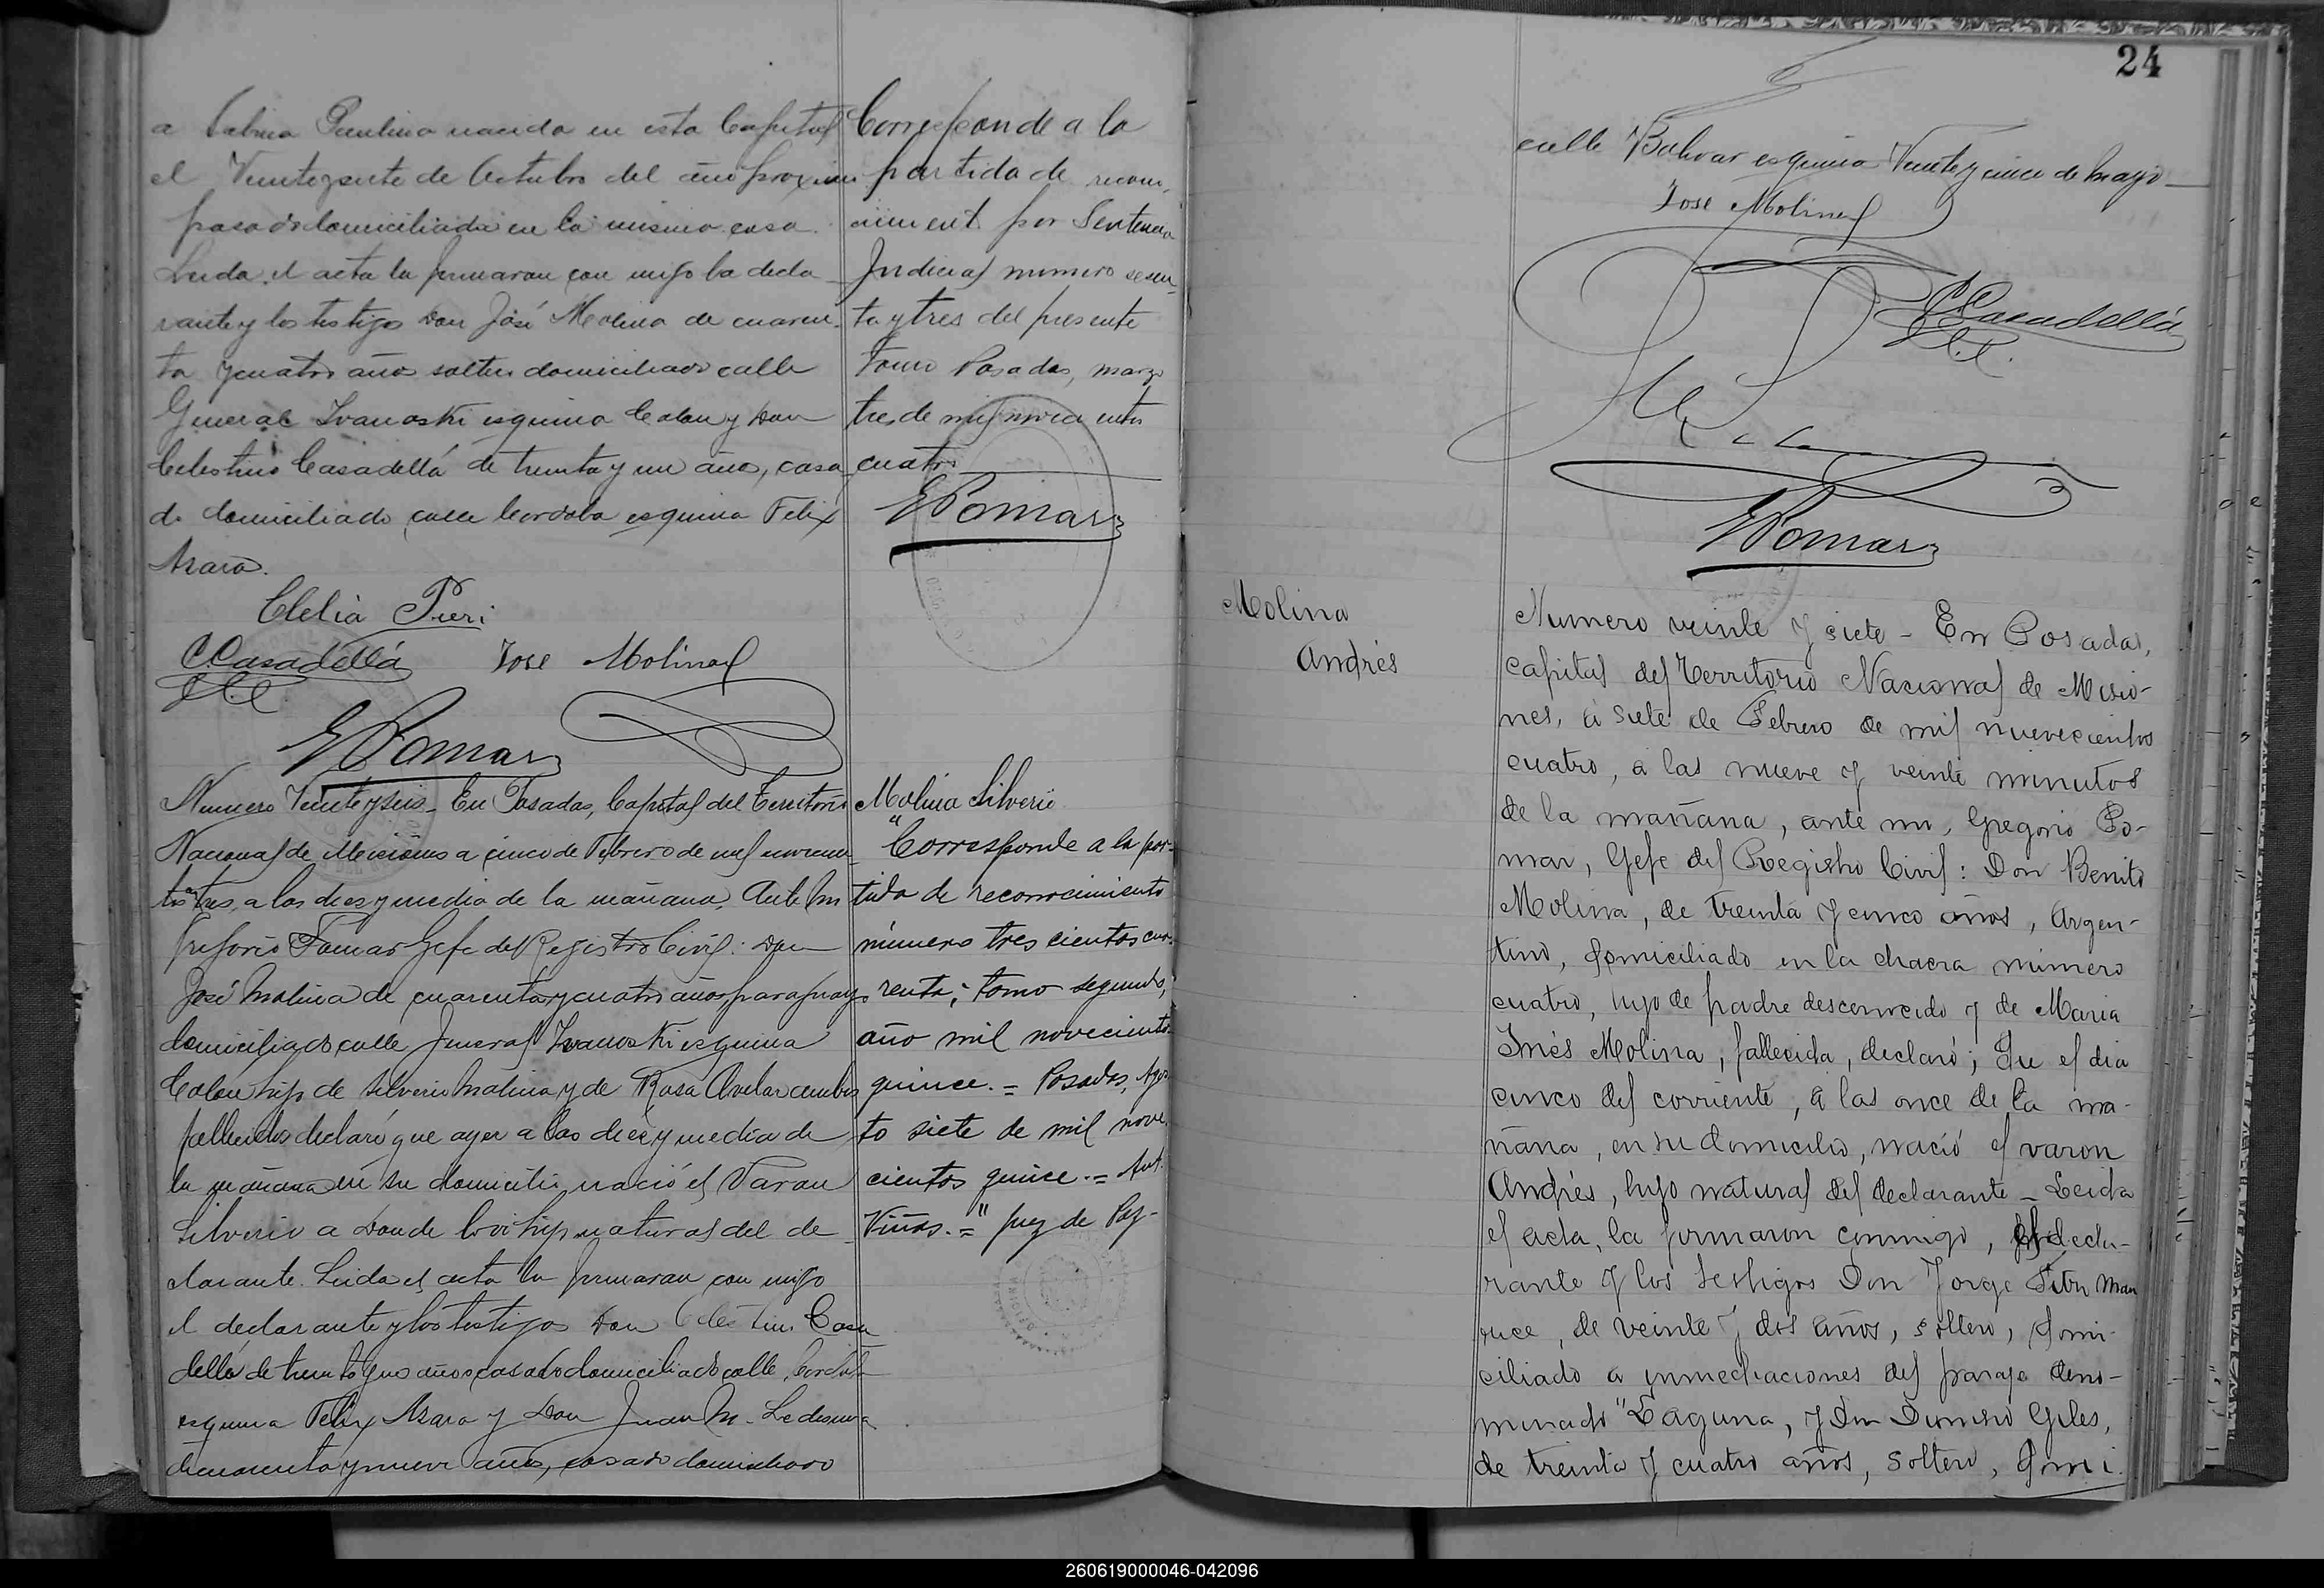 a Sabina Paulina nacida en esta Capital
el Veintesiete de Octubre del año proximo
pasado domiciliada en la misma casa.
Leida el acta la firmaron con migo la decla
rante y los testigos Don José Molina de cuaren
ta y cuatro años soltero domiciliado calle
General Ivanoski esquina Colon y Don
Celestino Casadellá de treinta y un año, casa
do domiciliado calle Cordoba esquina Felix
Azara.
Clelia Pieri
C. Casadellá Jose Molina
G Pomar
Corresponde a la
partida de recono
cimient por Sentencia
Judicial numero sesen
ta y tres del presente
tomo Posadas, marzo
tres de mil novecientos
cuatro
G Pomar
Numero Veinte y seis_ En Posadas, Capital del Territorio
Nacional de Misiones a cinco de Febrero de mil novecien
tos tres, a las diez y media de la mañana, Ante mi
Gregorio Pomar Gefe del Registro Civil: Don
José Molina de cuarenta y cuatro años, paraguayo
domiciliado calle General Ivanoski esquina
Colon hijo de Silverio Molina y de Rosa Avelar ambos
fallecidos declaró que ayer a las diez y media de
la mañana en su domicilio nació el Varon
Silverio a donde lo vi hijo natural del de
clarante. Leida el acta la firmaron con migo
el declarante y los testigos Don Celestino Casa
dellá de treinta y un años casado domiciliado calle Cordoba
esquina Felix Azara y Don Juan M. Ledesma
de cuarenta y nueve años, casado domiciliado
Molina Silverio
"Corresponde a la par-
tida de reconocimiento
número tres cientos cua-
renta; tomo segundo,
año mil novecientos
quince.= Posadas, Agos-
to siete de mil nove
cientos quince.= Ant.
Viñas.=" Juez de Paz-
24
calle Bolivar esquina Veinte y cinco de Mayo_
Jose Molina
C. Casadellá
G Pomar
Molina
Andrés
Numero veinte y siete - En Posadas,
capital del Territorio Nacional de Misio-
nes, á siete de Febrero de mil nuevecientos
cuatro, á las nueve y veinte minutos
de la mañana, ante mi, Gregorio Po-
mar, Gefe del Registro Civil: Don Benito
Molina, de treinta y cinco años, Argen-
tino, domiciliado en la chacra número
cuatro, hijo de padre desconocido y de Maria
Inés Molina, fallecida, declaró; Que el dia
cinco del corriente, á las once de la ma-
ñana, en su domicilio, nació el varon
Andrés, hijo natural del declarante _ Leida
el acta, la firmaron conmigo, el decla-
rante y los testigos Don Jorge
de veinte y dos años, soltero, domi-
ciliado a inmediaciones del paraje deno-
minado "Laguna, y Don Dionisio Giles,
de treinta y cuatro años, soltero, domi-
260619000046-042096